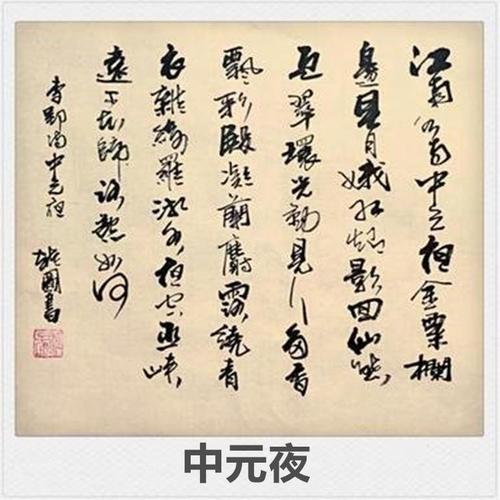 江南水寺中元夜金粟欄
邊見月娥紅燭影回仙態
近翠環光動見人多香
飄彩殿凝蘭麝露繞青
衣雜綺羅湘水夜空巫峽
遠不知歸路欲如何
李郢詩中元夜
國書
中元夜